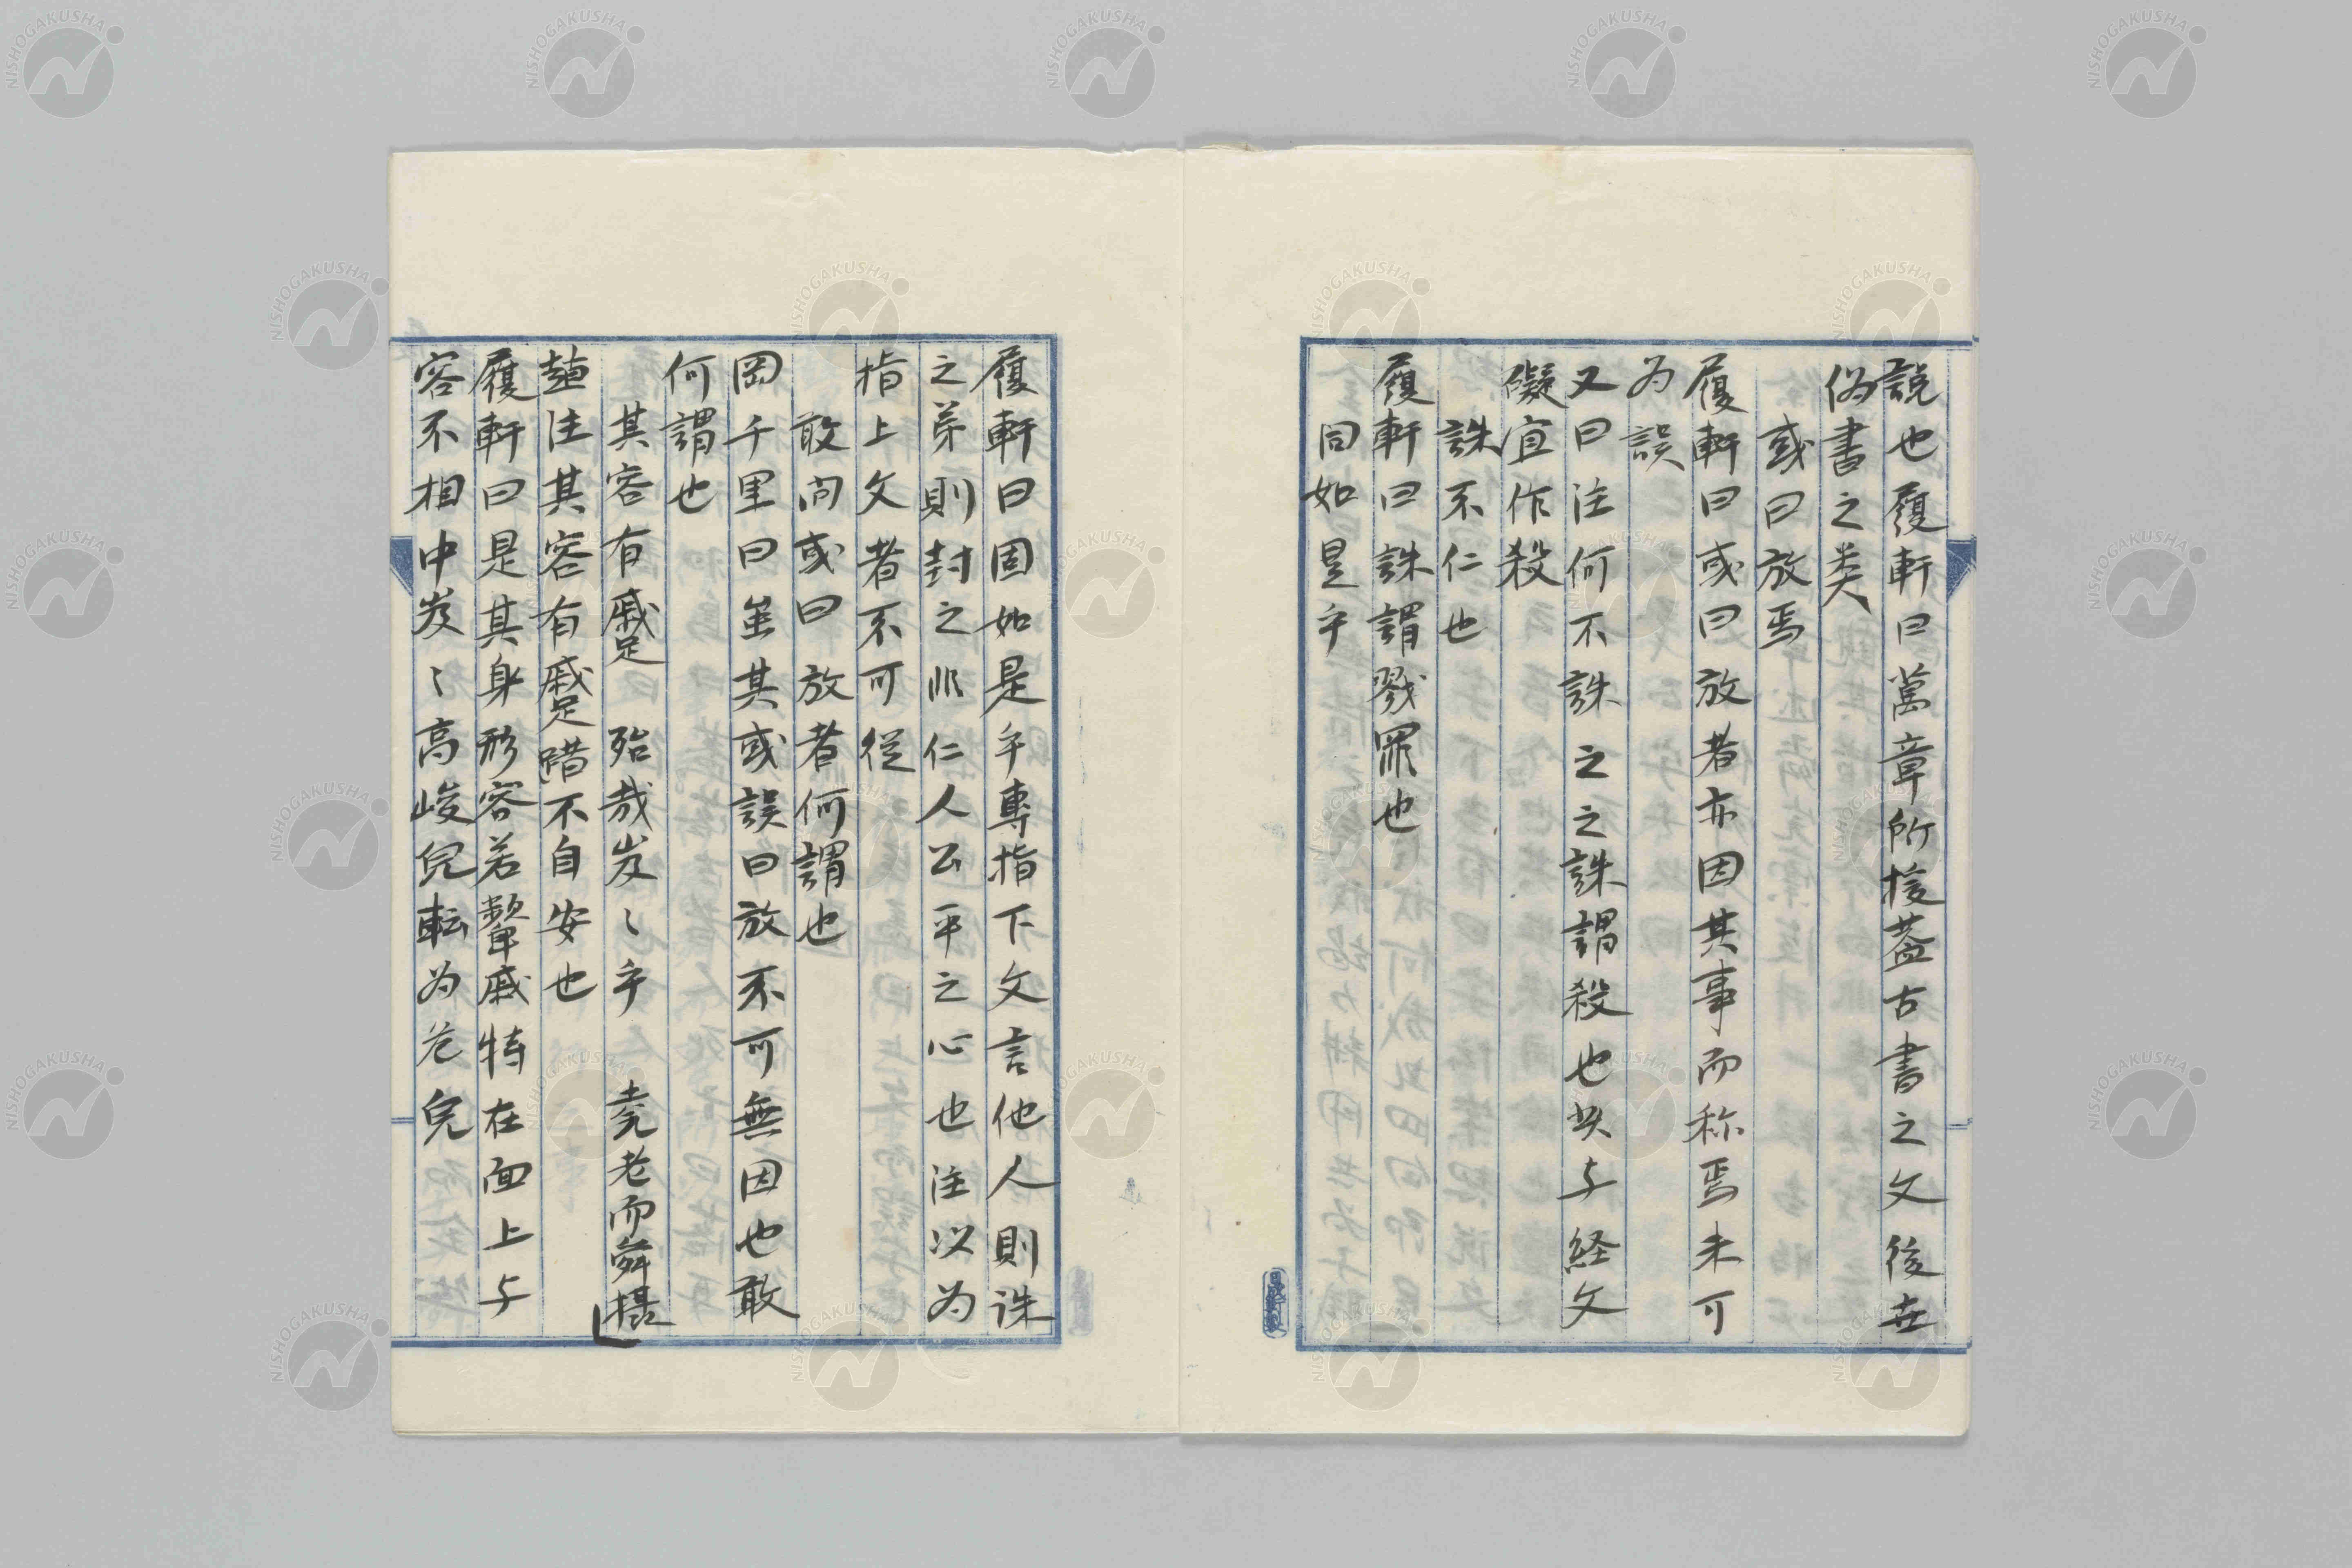 説也履軒曰萬章所援蓋古書之文後世
偽書之类
或曰放焉
履軒曰或曰放者亦因其事而称焉未可
为誤
又曰注何不誅之之誅謂殺也与经文
礙宜作殺
誅不仁也
履軒曰誅謂戮罪也
同如是乎
履軒曰固如是乎專指下文言他人則誅
之弟則封之非仁人公平之心也注以为
指上文者不可從
敢问或曰放者何謂也
岡千里曰虽其或誤曰放不可無因也敢
何謂也
其容有蹙 殆哉岌〻乎 堯老而舜攝
趙注其容有蹙踖不自安也
履軒曰是其身形容若顰戚特在面上与
容不相中岌〻高峻皃転为危皃
NISHOGAKUSHA